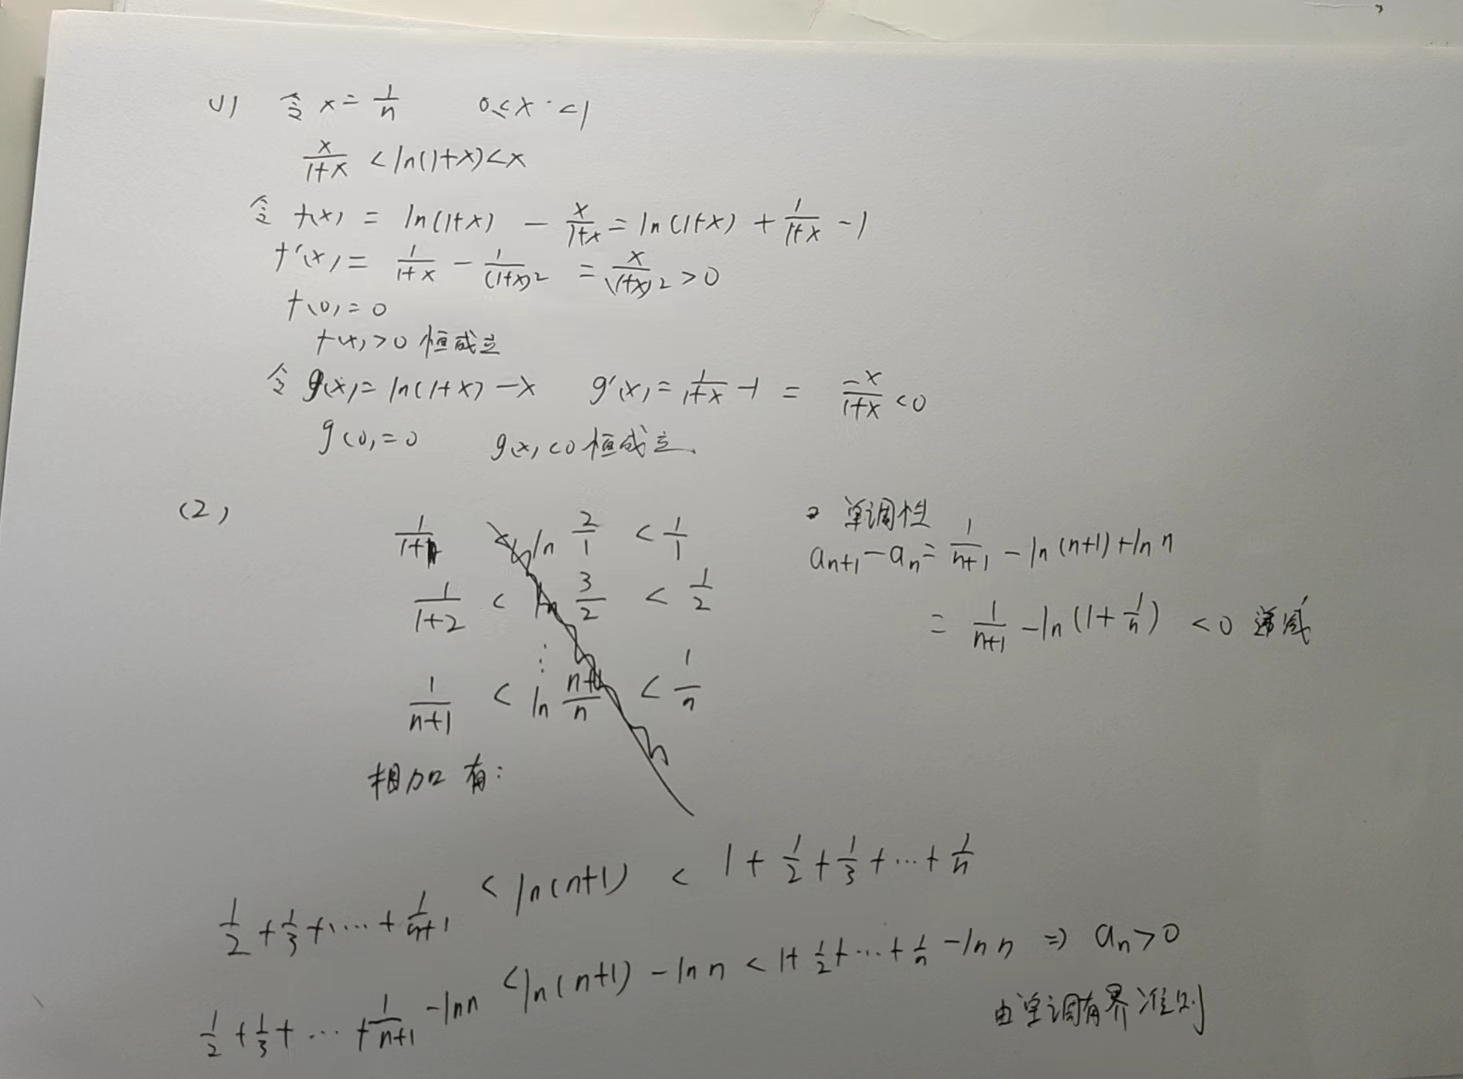 (1) 令 x = 1/n 0 < x < 1
x/(1+x) < ln(1+x) < x
令 f(x) = ln(1+x) - x/(1+x) = ln(1+x) + 1/(1+x) - 1
f'(x) = 1/(1+x) - 1/(1+x)² = x/(1+x)² > 0
f(0) = 0
f(x) > 0 恒成立
令 g(x) = ln(1+x) - x g'(x) = 1/(1+x) - 1 = -x/(1+x) < 0
g(0) = 0 g(x) < 0 恒成立.
(2)
1/(1+1) < ln 2/1 < 1/1
1/(1+2) < ln 3/2 < 1/2
⋮
1/(n+1) < ln (n+1)/n < 1/n
相加有:
1/2 + 1/3 + ⋯ + 1/(n+1) < ln(n+1) < 1 + 1/2 + 1/3 + ⋯ + 1/n
1/2 + 1/3 + ⋯ + 1/(n+1) - ln n < ln(n+1) - ln n < 1 + 1/2 + ⋯ + 1/n - ln n ⇒ aₙ > 0
由单调有界准则
单调性
aₙ₊₁ - aₙ = 1/(n+1) - ln(n+1) + ln n
= 1/(n+1) - ln(1 + 1/n) < 0 递减